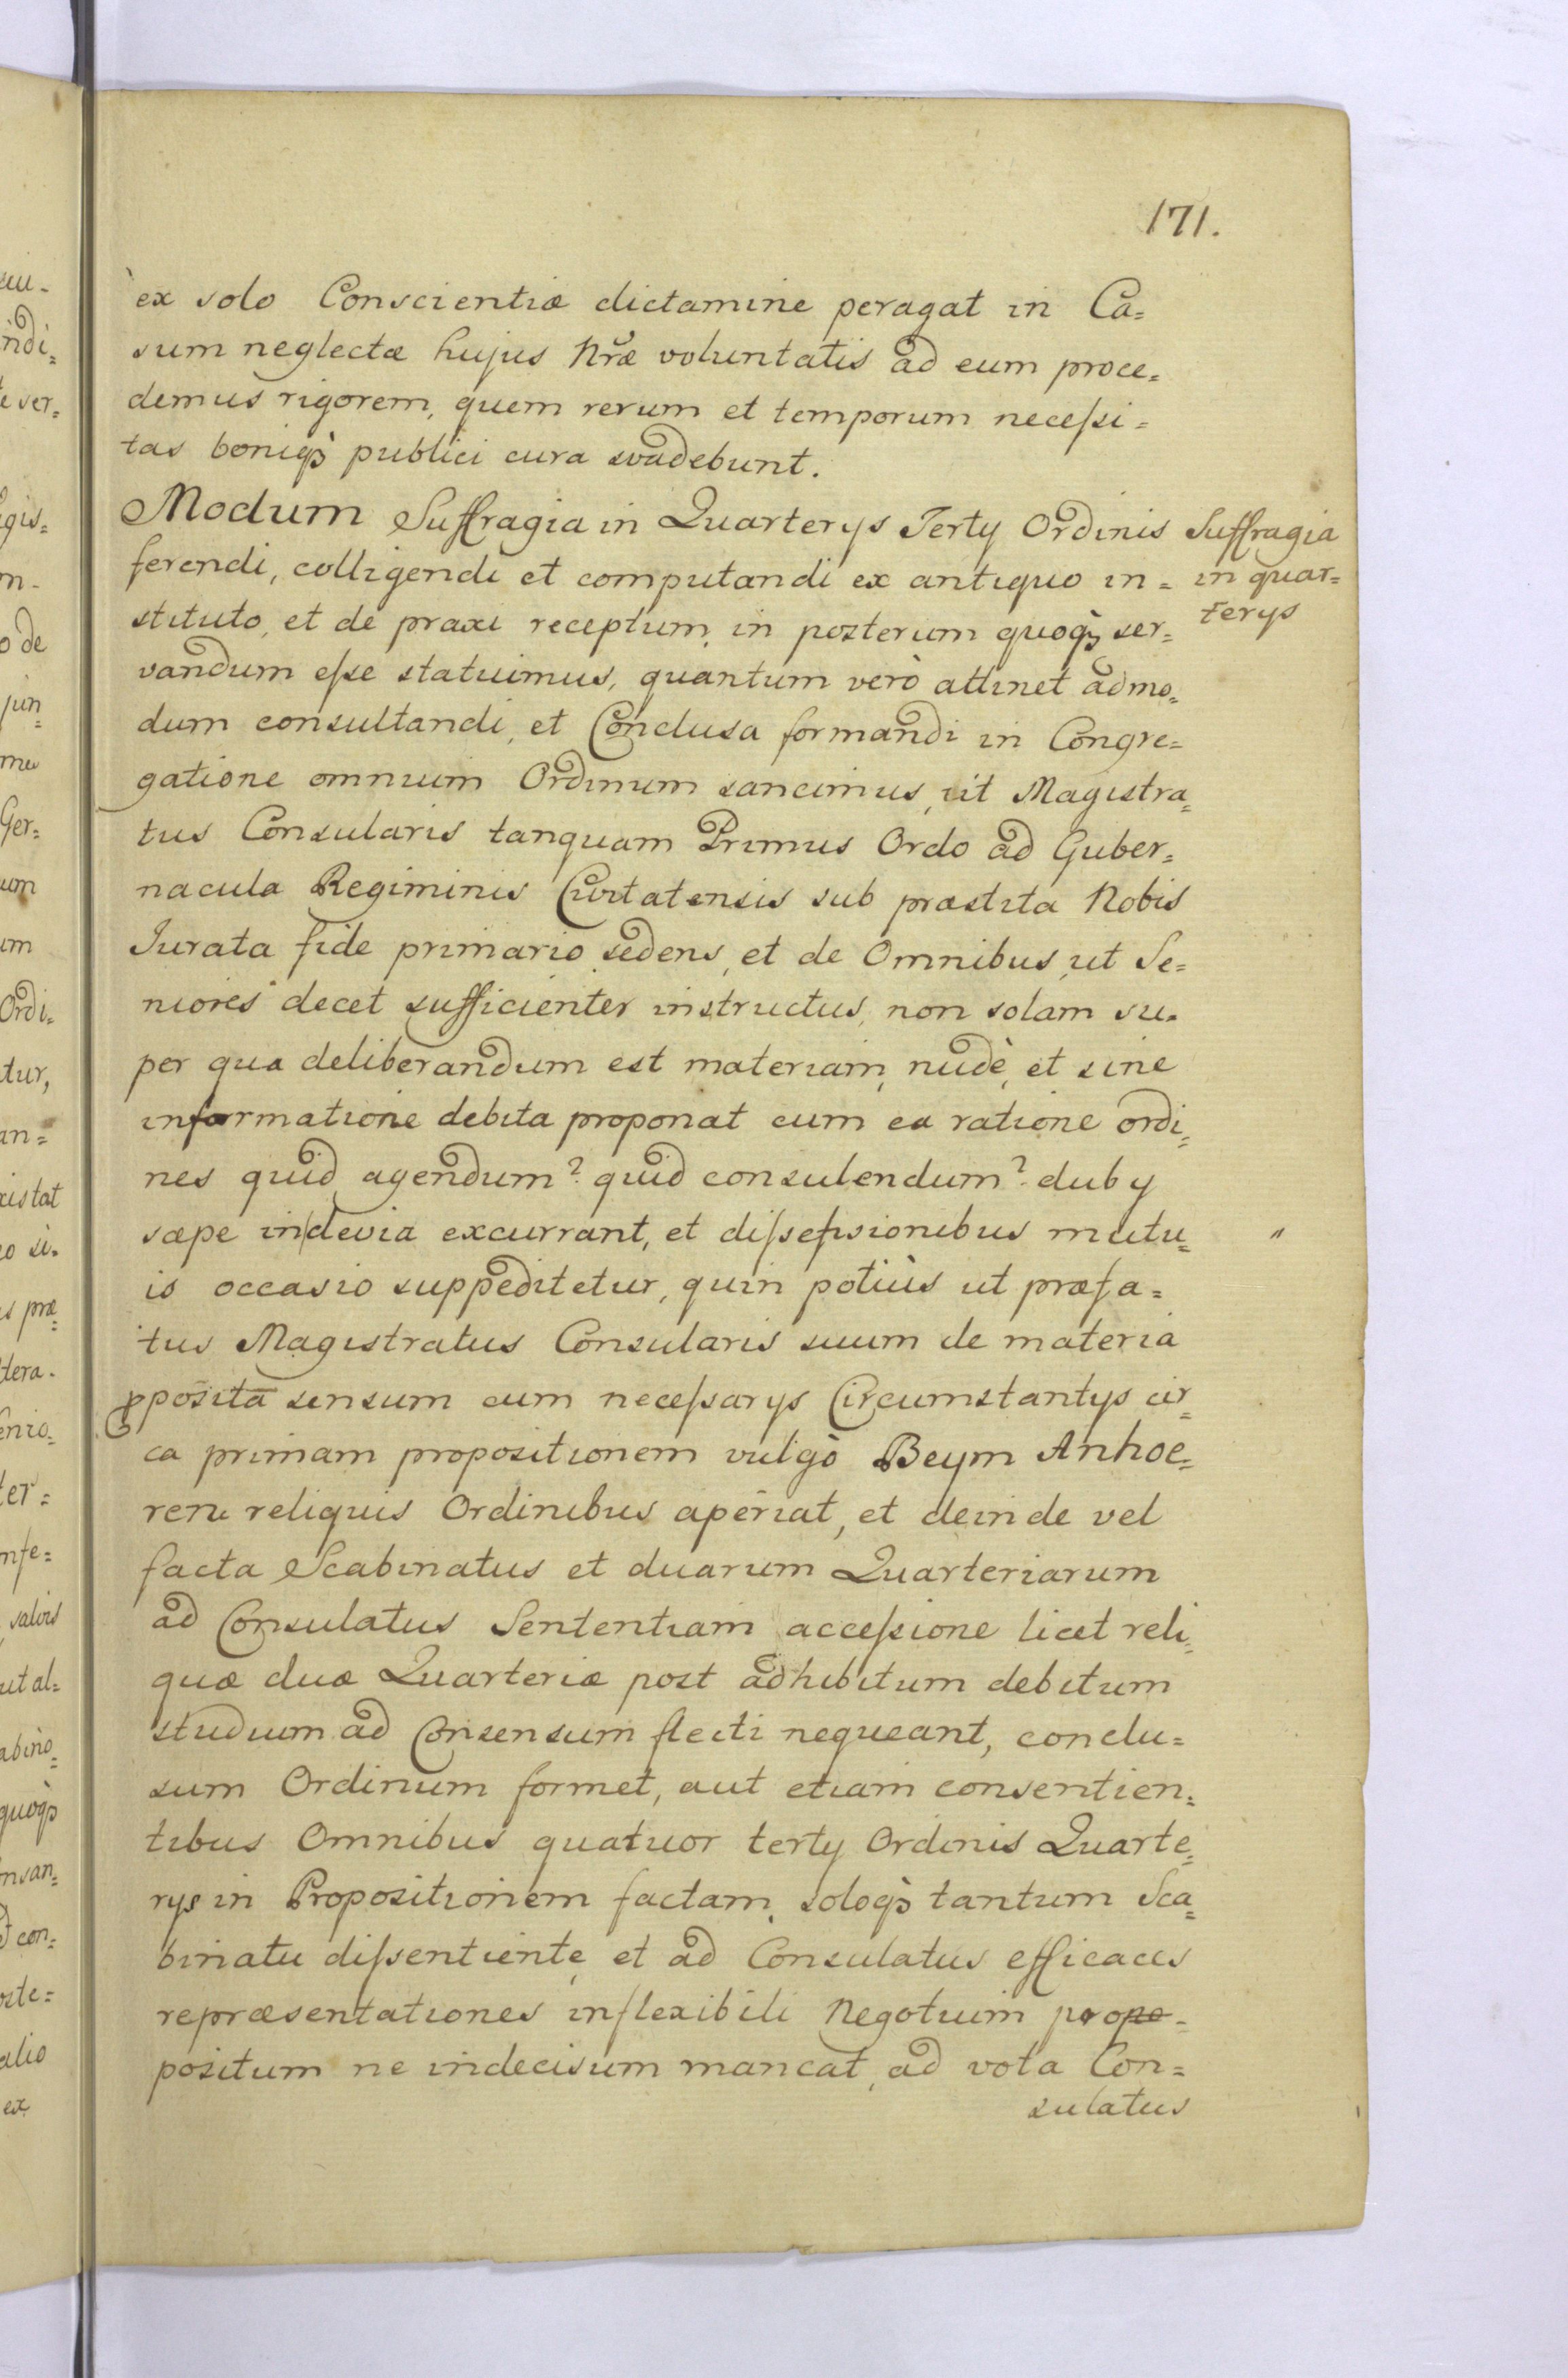 171.
ex solo Conscientiæ dictamine peragat in Ca=
sum neglectæ hujus Nræ voluntatis ad eum proce=
demus rigorem, quem rerum et temporum necessi=
tas boniqꝫ publici cura svadebunt.
Modum Suffragia in Quarterys Terty Ordinis
ferendi, colligendi et computandi ex antiquo in=
stituto, et de praxi receptum, in posterum quoqꝫ ser=
vandum esse statuimus, quantum verò attinet ad mo=
dum consultandi, et Conclusa formandi in Congre=
gatione omnium Ordinum sancimus, ut Magistra=
tus Consularis tanquam Primus Ordo ad Guber=
nacula Regiminis Civitatensis sub præstita Nobis
Jurata fide primario sedens, et de Omnibus, ut Se=
niores decet sufficienter instructus, non solam su=
per qua deliberandum est materiam, nudè, et sine
informatione debita proponat cum ea ratione ordi=
nes quid agendum? quid consulendum? duby
sæpe in devia excurrant, et dissensionibus mutu=
is occasio suppeditetur, quin potiùs ut præfa=
tus Magistratus Consularis suum de materia
pposita sensum cum necessarys Circumstantys cir=
ca primam propositionem vulgò Beym Anhoe=
ren reliquis Ordinibus aperiat, et deinde vel
facta Scabinatus et duarum Quarteriarum
ad Consulatus Sententiam accessione licet reli=
quæ duæ Quarteriæ post adhibitum debitum
studium ad Consensum flecti nequeant, conclu=
sum Ordinum formet, aut etiam consentien=
tibus Omnibus quatuor terty Ordinis Quarte=
rys in Propositionem factam, soloqꝫ tantum Sca=
binatu dissentiente, et ad Consulatus efficaces
repræsentationes inflexibili Negotium propo=
positum ne indecisum maneat, ad vota Con=
sulatus
Suffragia
in quar=
terys
"